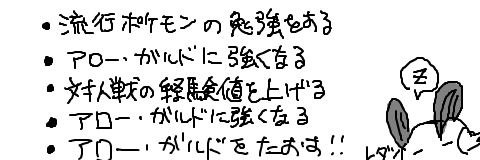 ・流行ポケモンの勉強をする
・アロー・ガルドに強くなる
・対人戦の経験値を上げる
・アロー・ガルドに強くなる
・アロー・ガルドをたおす!!
Z